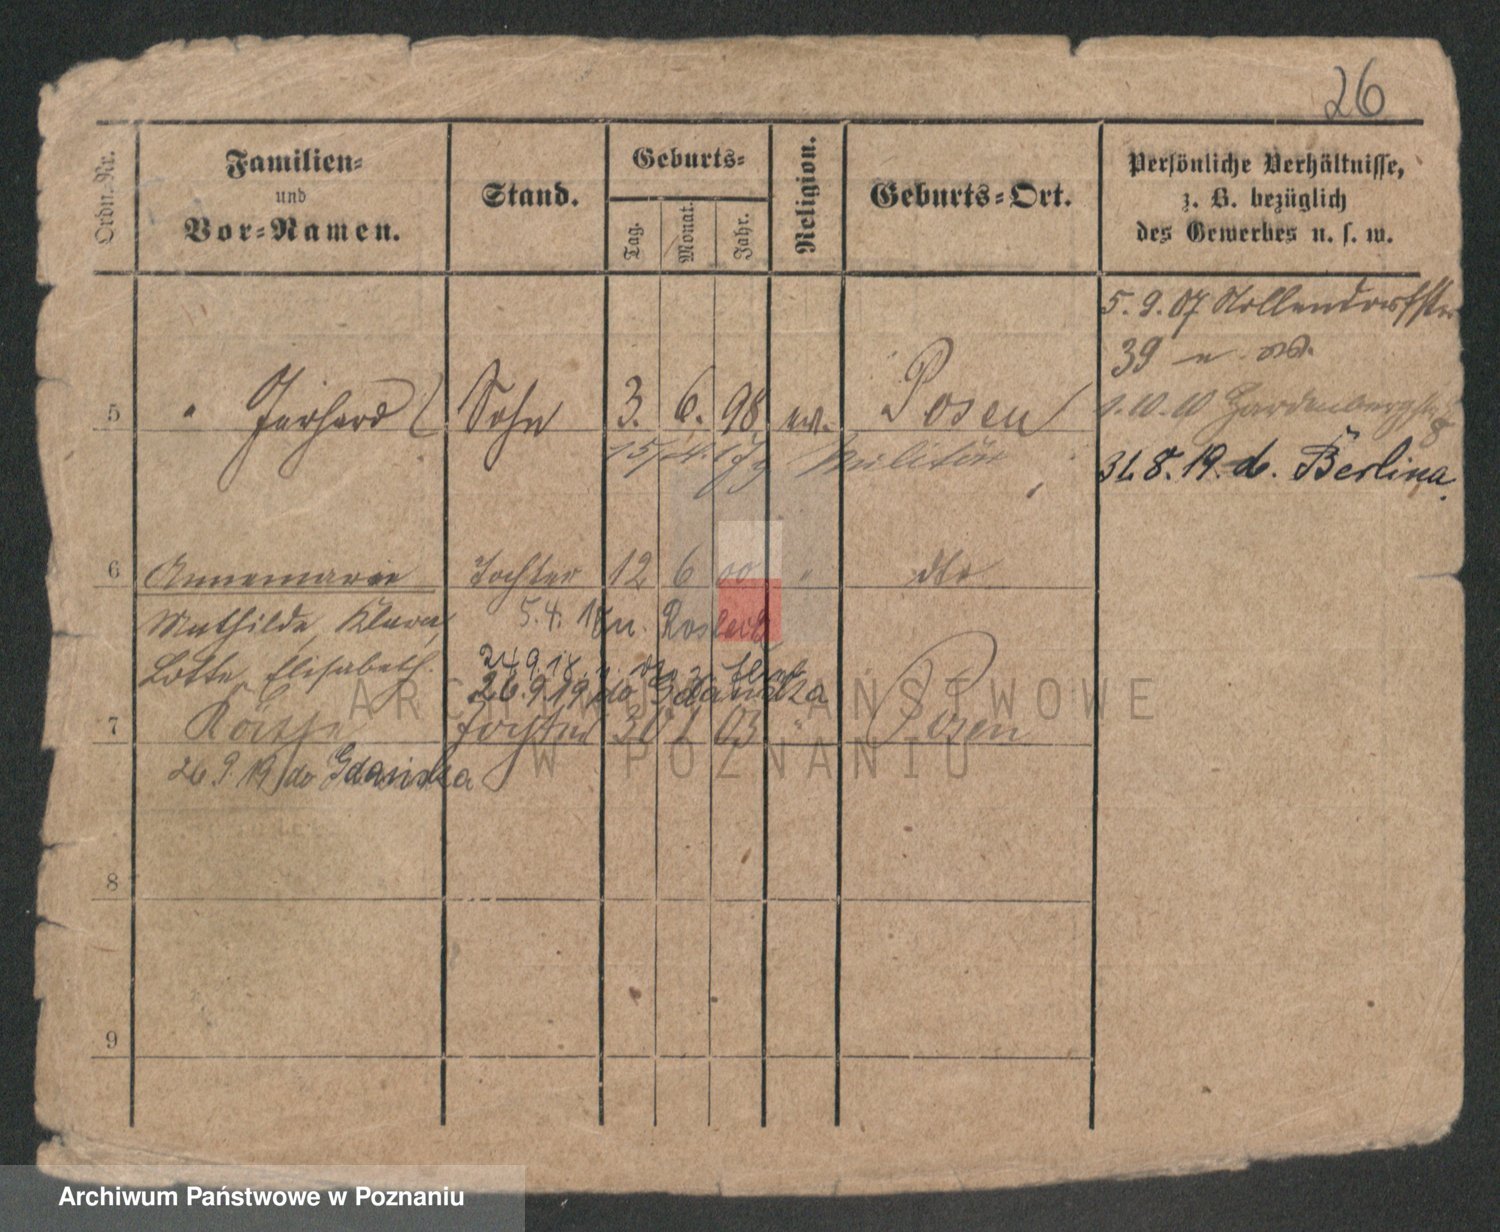 26
Ordn.-Nr.
Familien-
und
Vor-Namen.
Stand.
Geburts-
Tag.
Monat.
Jahr.
Religion.
Geburts-Ort.
Persönliche Verhältnisse,
z. B. bezüglich
des Gewerbes u. s. w.
5.9.07 Nollendorfstr
39
5 " Gerhard Sohn 3. 6. 98 ev. Posen
1.10.10 Hardenbergstr
8
15/4. 17 Militär
31.8.19. do. Berlina.
6 Annemarie Tochter 12 6 00 " dto
Mathilde, Klara,
5.4.18 n.
Lotte, Elisabeth.
24.9.18
26.9.19 do Gdańska
7 Käthe Tochter 30 1 03 " Posen
26.9.19 do Gdańska
8
9
ARCHIWUM PAŃSTWOWE
W POZNANIU
Archiwum Państwowe w Poznaniu